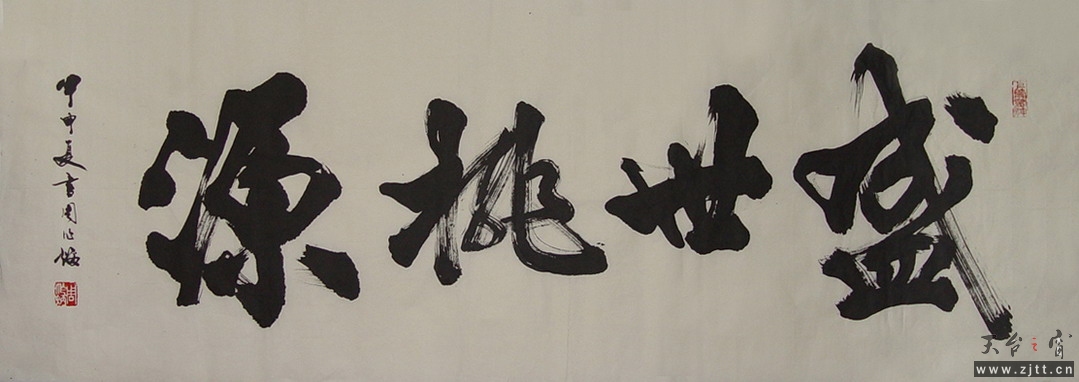 盛世桃源
甲申夏书周
天台
www.zjtt.cn